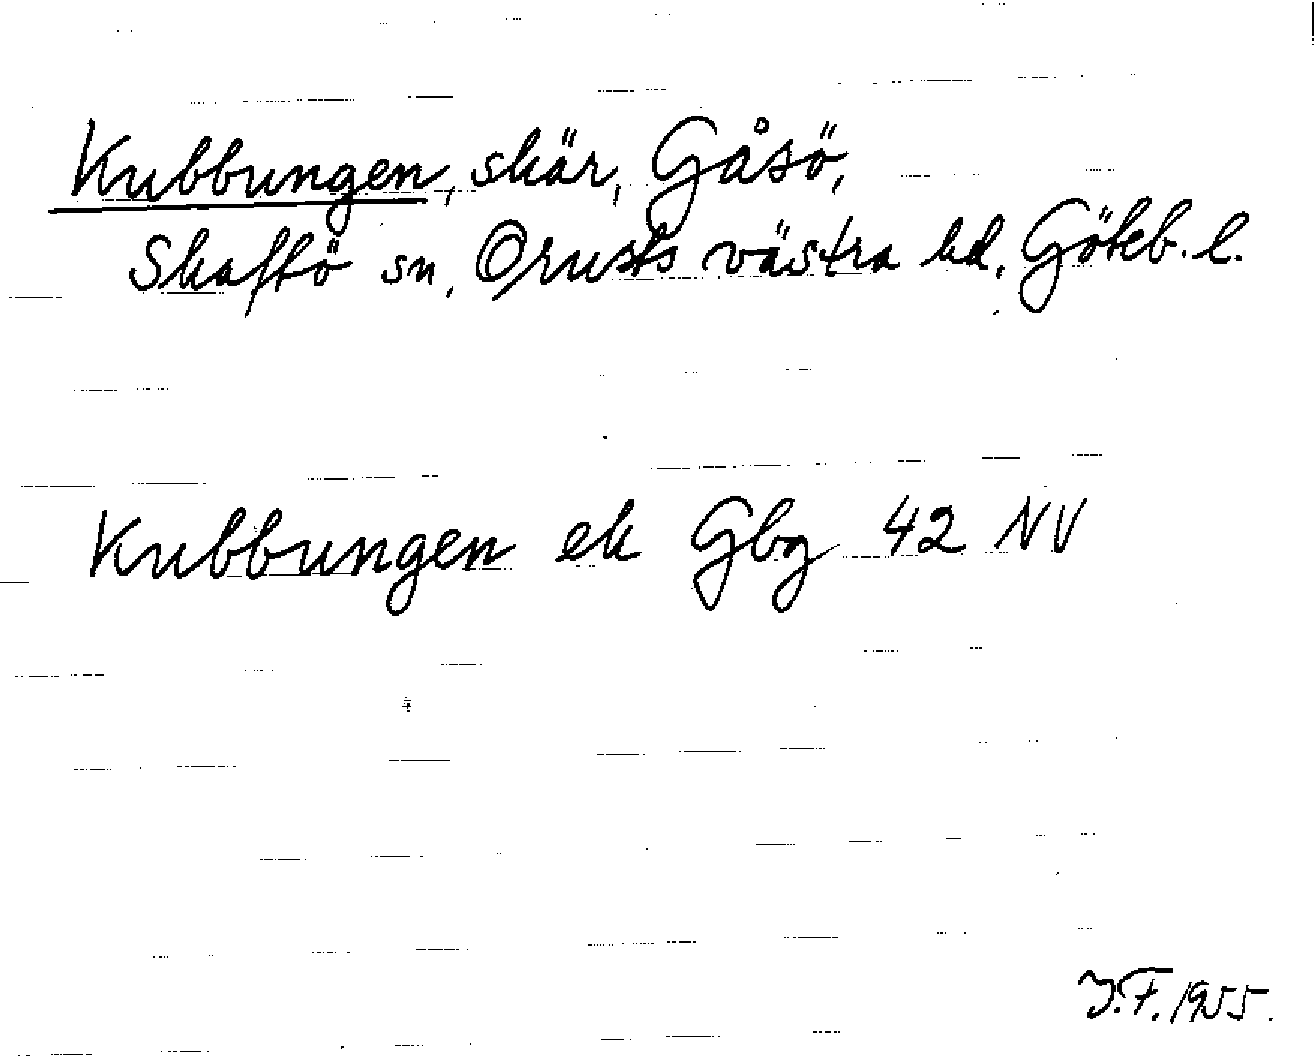 Kubbungen, skär, Gåsö,
Skaftö sn, Orusts västra hd, Göteb. l.
Kubbungen ek Gbg 42 NV
J.F. 1955.